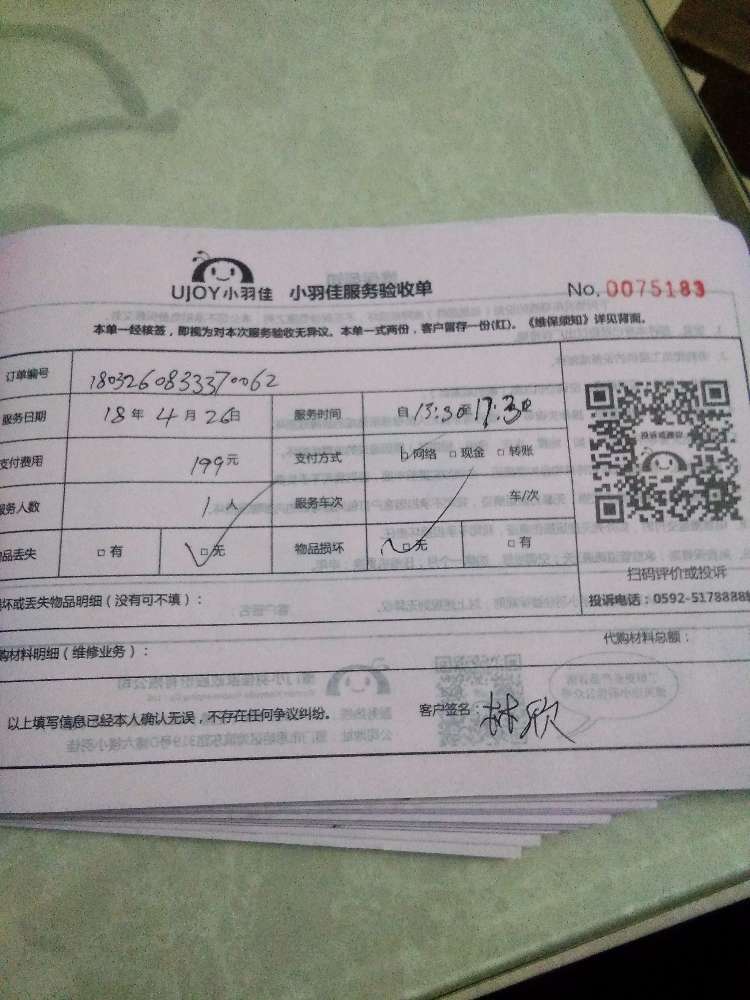 UJOY小羽佳 小羽佳服务验收单 No. 0075183
本单一经核签，即视为对本次服务验收无异议。本单一式两份，客户留存一份(红)。《维保须知》详见背面。
订单编号 1803260833370062
服务日期 18年 4月26日 服务时间 自13:30至17:30
支付费用 199元 支付方式 网络 □现金 □转账
投诉或建议
服务人数 1人 服务车次 车/次
品丢失 □有 □无 物品损坏 □无 □有
扫码评价或投诉
坏或丢失物品明细（没有可不填）： 投诉电话：0592-5178888
购材料明细（维修业务）： 代购材料总额：
以上填写信息已经本人确认无误，不存在任何争议纠纷。 客户签名：林欣